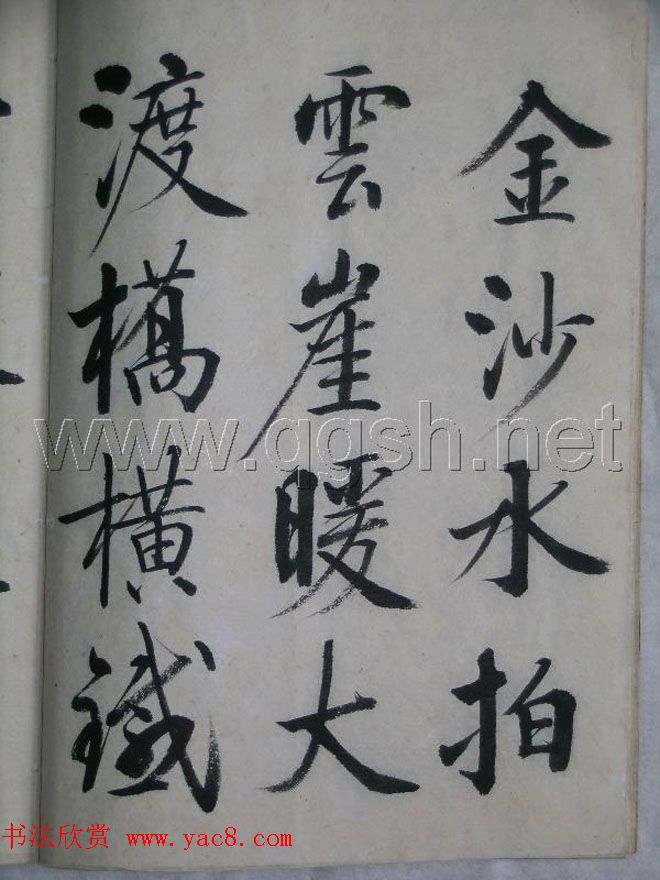 金沙水拍
雲崖暖大
渡橋橫鐵
www.qgsh.net
书法欣赏 www.yac8.com